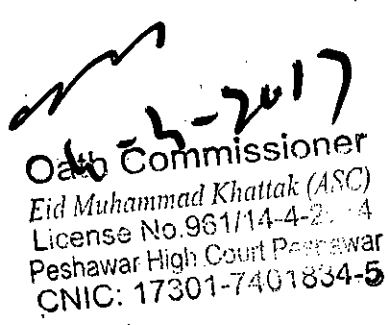 -2017
Oath Commissioner
Eid Muhammad Khattak (ASC)
License No.961/14-4-2
Peshawar High Court Peshawar
CNIC: 17301-7401834-5